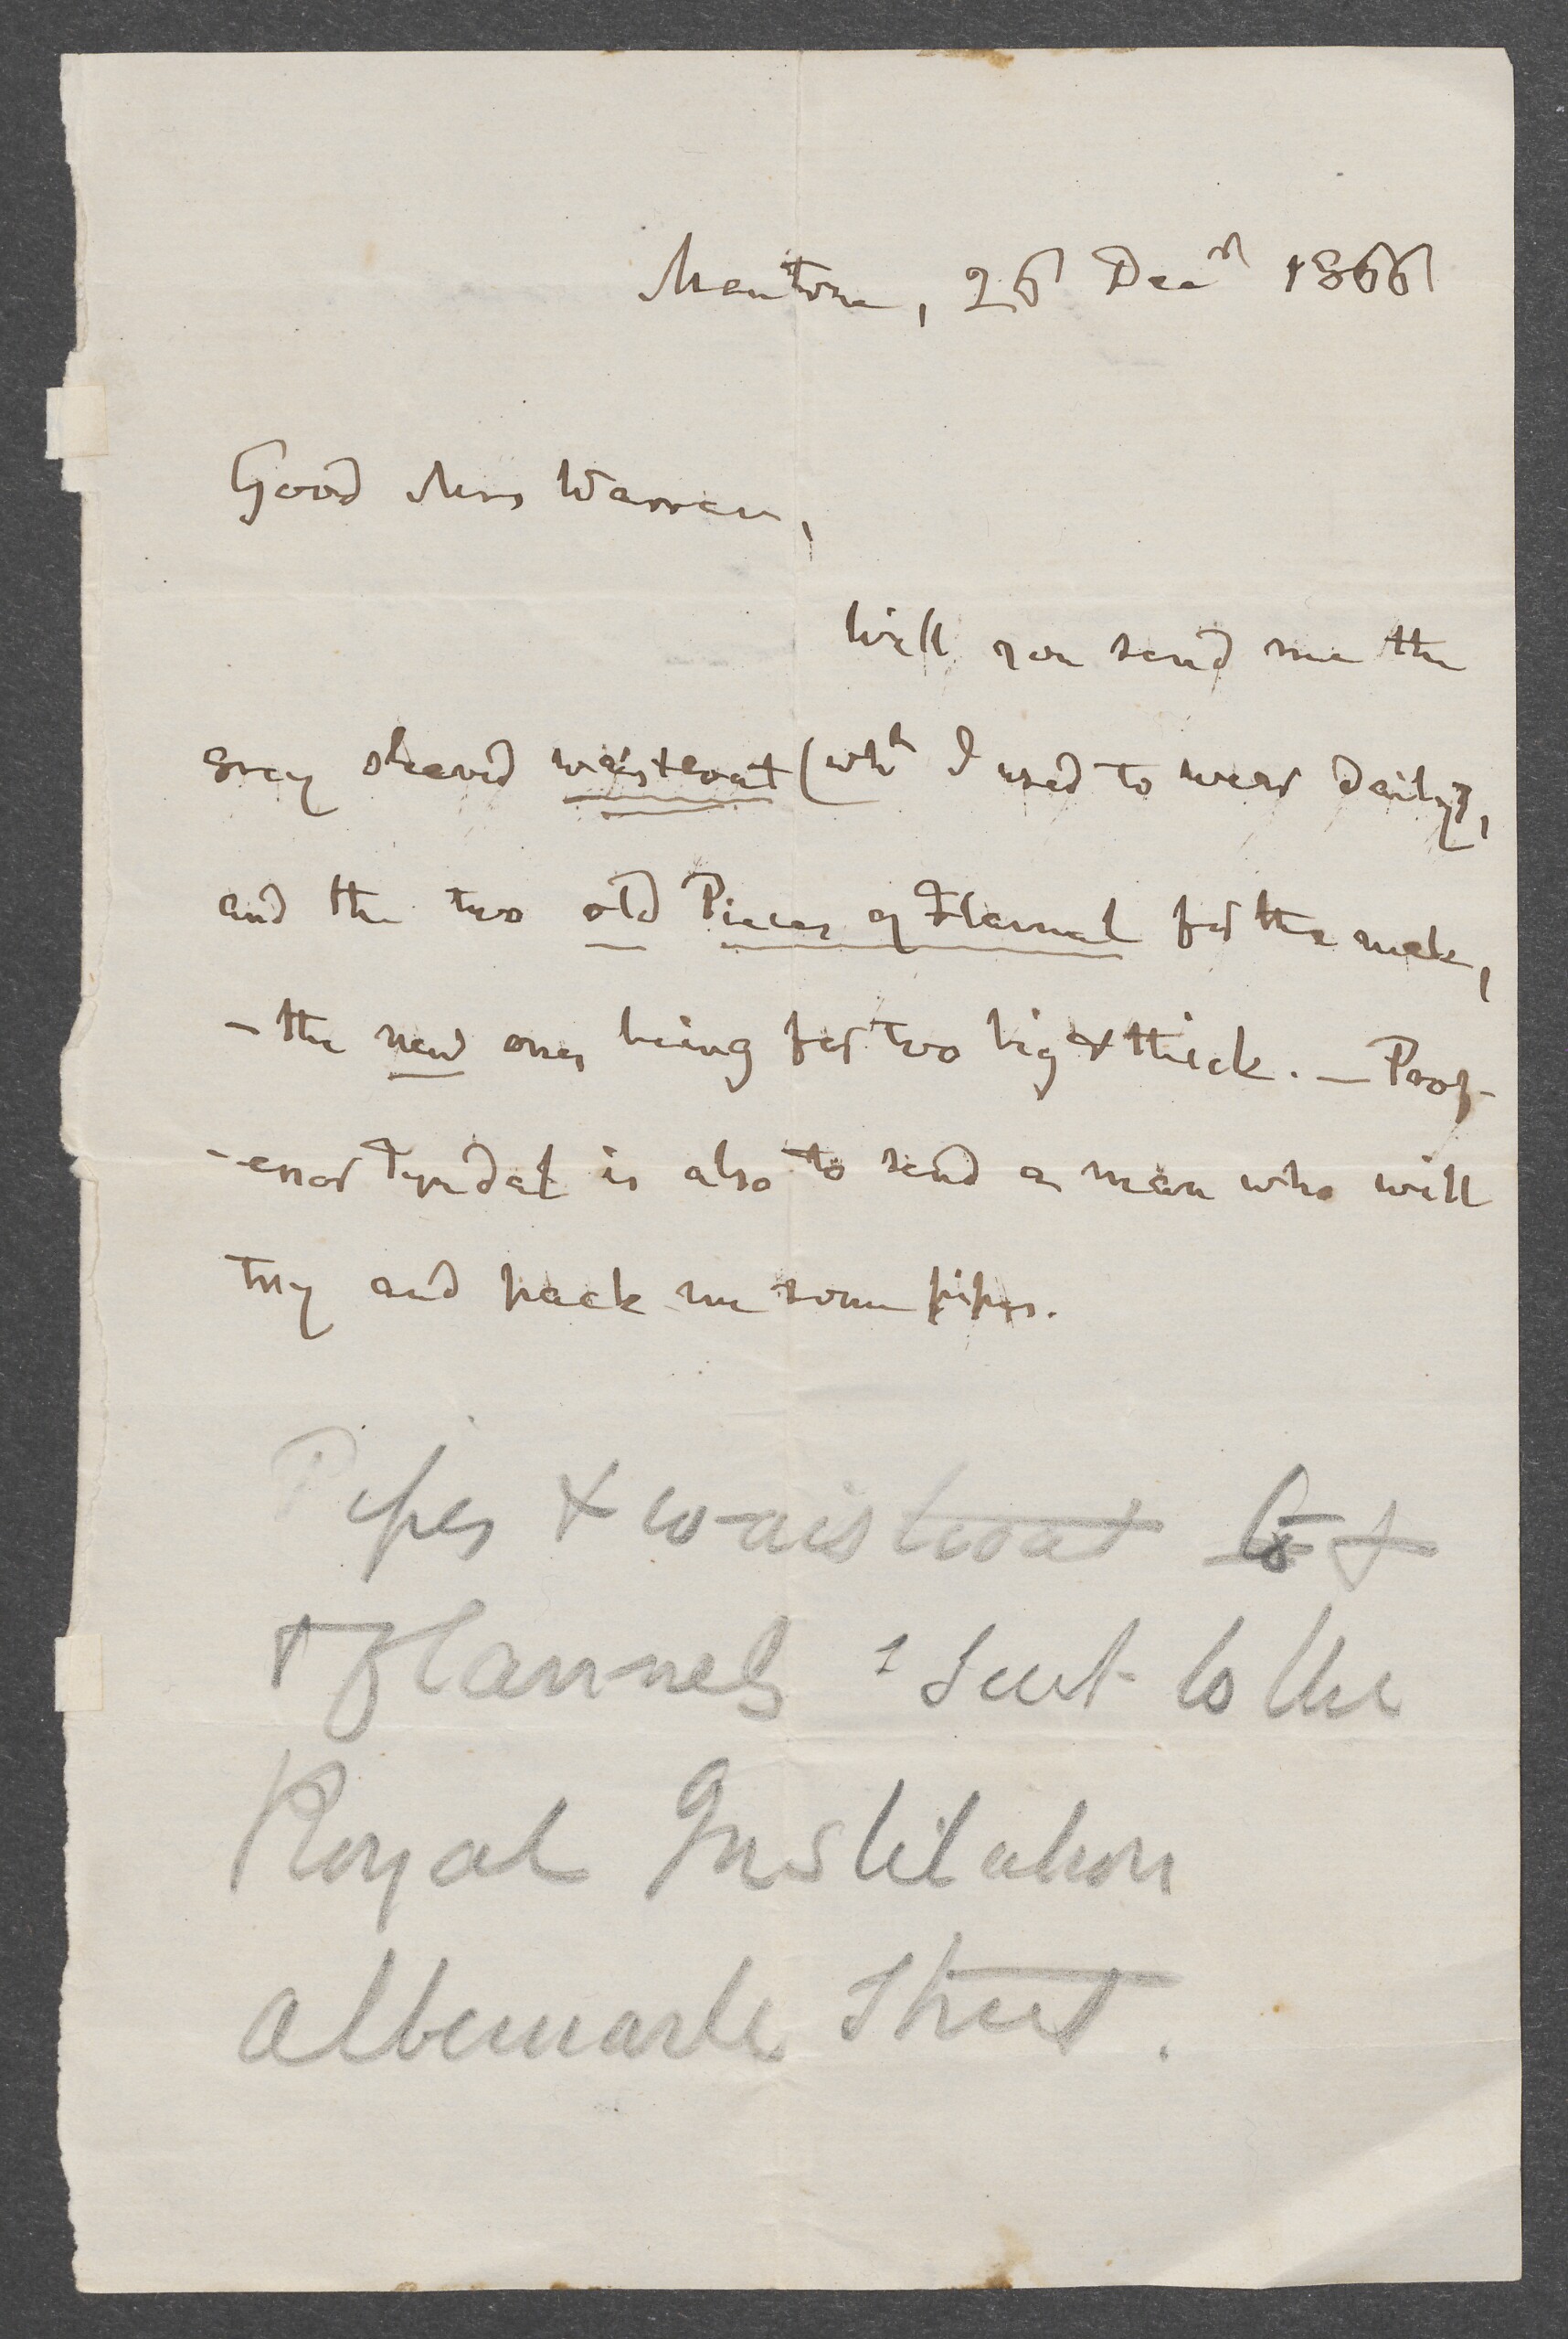 Mentone, 26 Decr 1866
Good Mrs Warren,
Will you send me the
grey sleeved waistcoat (whh I used to wear daily),
and the two old Pieces of Flannel for the neck,
– the new ones being far too big & thick. – Prof-
-essor Tyndal is also to send a man who will
try and pack me some pipes.
Pipes & waistcoat to &
& flannels sent to the
Royal Institution
Albemarle Street.